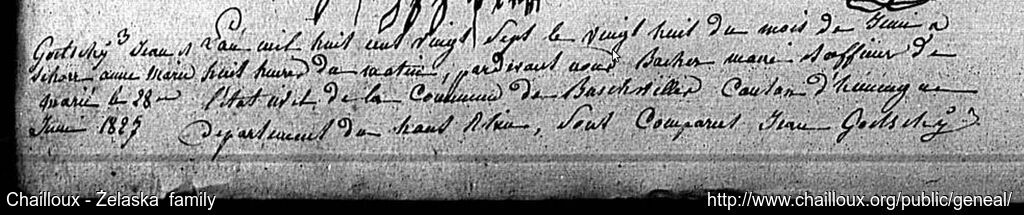 Goetschÿ Jean et
Schorr anne Marie
marié le 28em
Juin 1827
L'an mil huit cent vingt sept le vingt huit du mois de Jeun a
huit heures du matin, pardevant nous Bacher maire et officier de
l'état civil de la Commune de Buschwiller Canton d'huningue
Departement du haut Rhin, Sont Comparus Jean Goetschÿ
Chailloux - Żelaska family
http://www.chailloux.org/public/geneal/